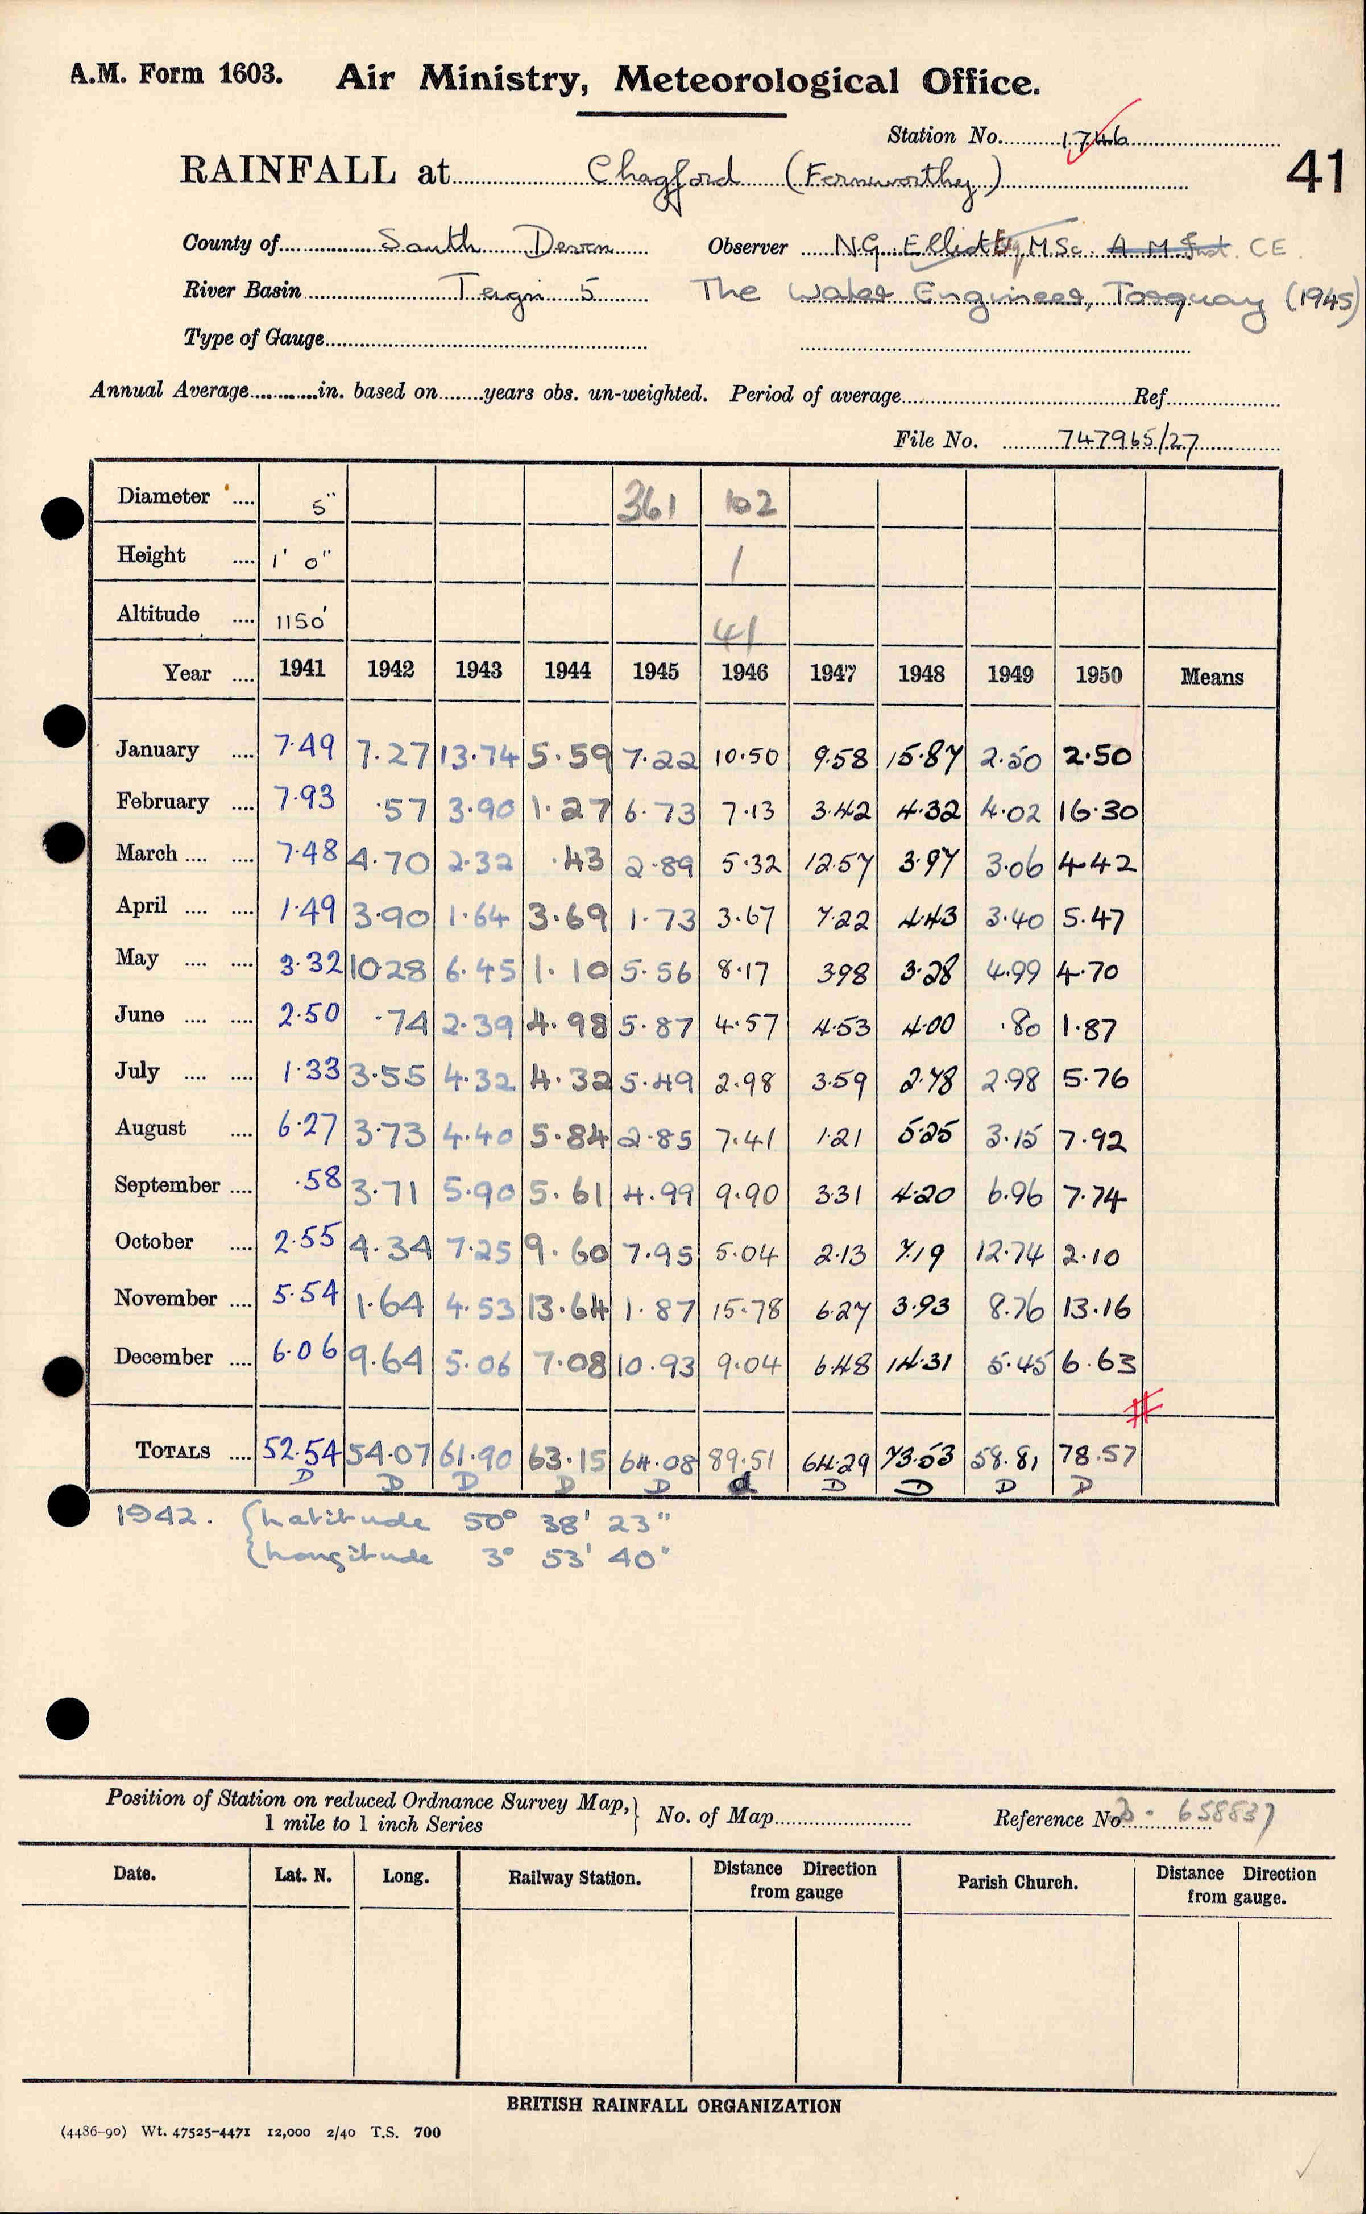 A.M. Form 1603. Air Ministry, Meteorological Office.
Station No. 1746
RAINFALL at Chagford (Fernworthy) 41
County of South Devon Observer N.G. Elliot Esq M.Sc. A M Inst. CE.
River Basin Teign 5 The Water Engineer, Torquay (1945)
Type of Gauge
Annual Average in. based on years obs. un-weighted. Period of average Ref
File No. 747965/27
Diameter 5" 361 102
Height 1' 0" 1
Altitude 1150' 41
Year 1941 1942 1943 1944 1945 1946 1947 1948 1949 1950 Means
January 7.49 7.27 13.74 5.59 7.22 10.50 9.58 15.87 2.50 2.50
February 7.93 .57 3.90 1.27 6.73 7.13 3.42 4.32 4.02 16.30
March 7.48 4.70 2.32 .43 2.89 5.32 12.57 3.97 3.06 4.42
April 1.49 3.90 1.64 3.69 1.73 3.67 7.22 4.43 3.40 5.47
May 3.32 10.28 6.45 1.10 5.56 8.17 3.98 3.28 4.99 4.70
June 2.50 .74 2.39 4.98 5.87 4.57 4.53 4.00 .80 1.87
July 1.33 3.55 4.32 4.32 5.49 2.98 3.59 2.78 2.98 5.76
August 6.27 3.73 4.40 5.84 2.85 7.41 1.21 5.25 3.15 7.92
September .58 3.71 5.90 5.61 4.99 9.90 3.31 4.20 6.96 7.74
October 2.55 4.34 7.25 9.60 7.95 5.04 2.13 7.19 12.74 2.10
November 5.54 1.64 4.53 13.64 1.87 15.78 6.27 3.93 8.76 13.16
December 6.06 9.64 5.06 7.08 10.93 9.04 6.48 14.31 5.45 6.63
TOTALS 52.54 54.07 61.90 63.15 64.08 89.51 64.29 73.53 58.81 78.57
D D D D D d D D D D
1942. { Latitude 50° 38' 23"
{ Longitude 3° 53' 40"
Position of Station on reduced Ordnance Survey Map, 1 mile to 1 inch Series } No. of Map Reference No. 658837
Date. Lat. N. Long. Railway Station. Distance Direction from gauge Parish Church. Distance Direction from gauge.
BRITISH RAINFALL ORGANIZATION
(4486-90) Wt. 47525-4471 12,000 2/40 T.S. 700